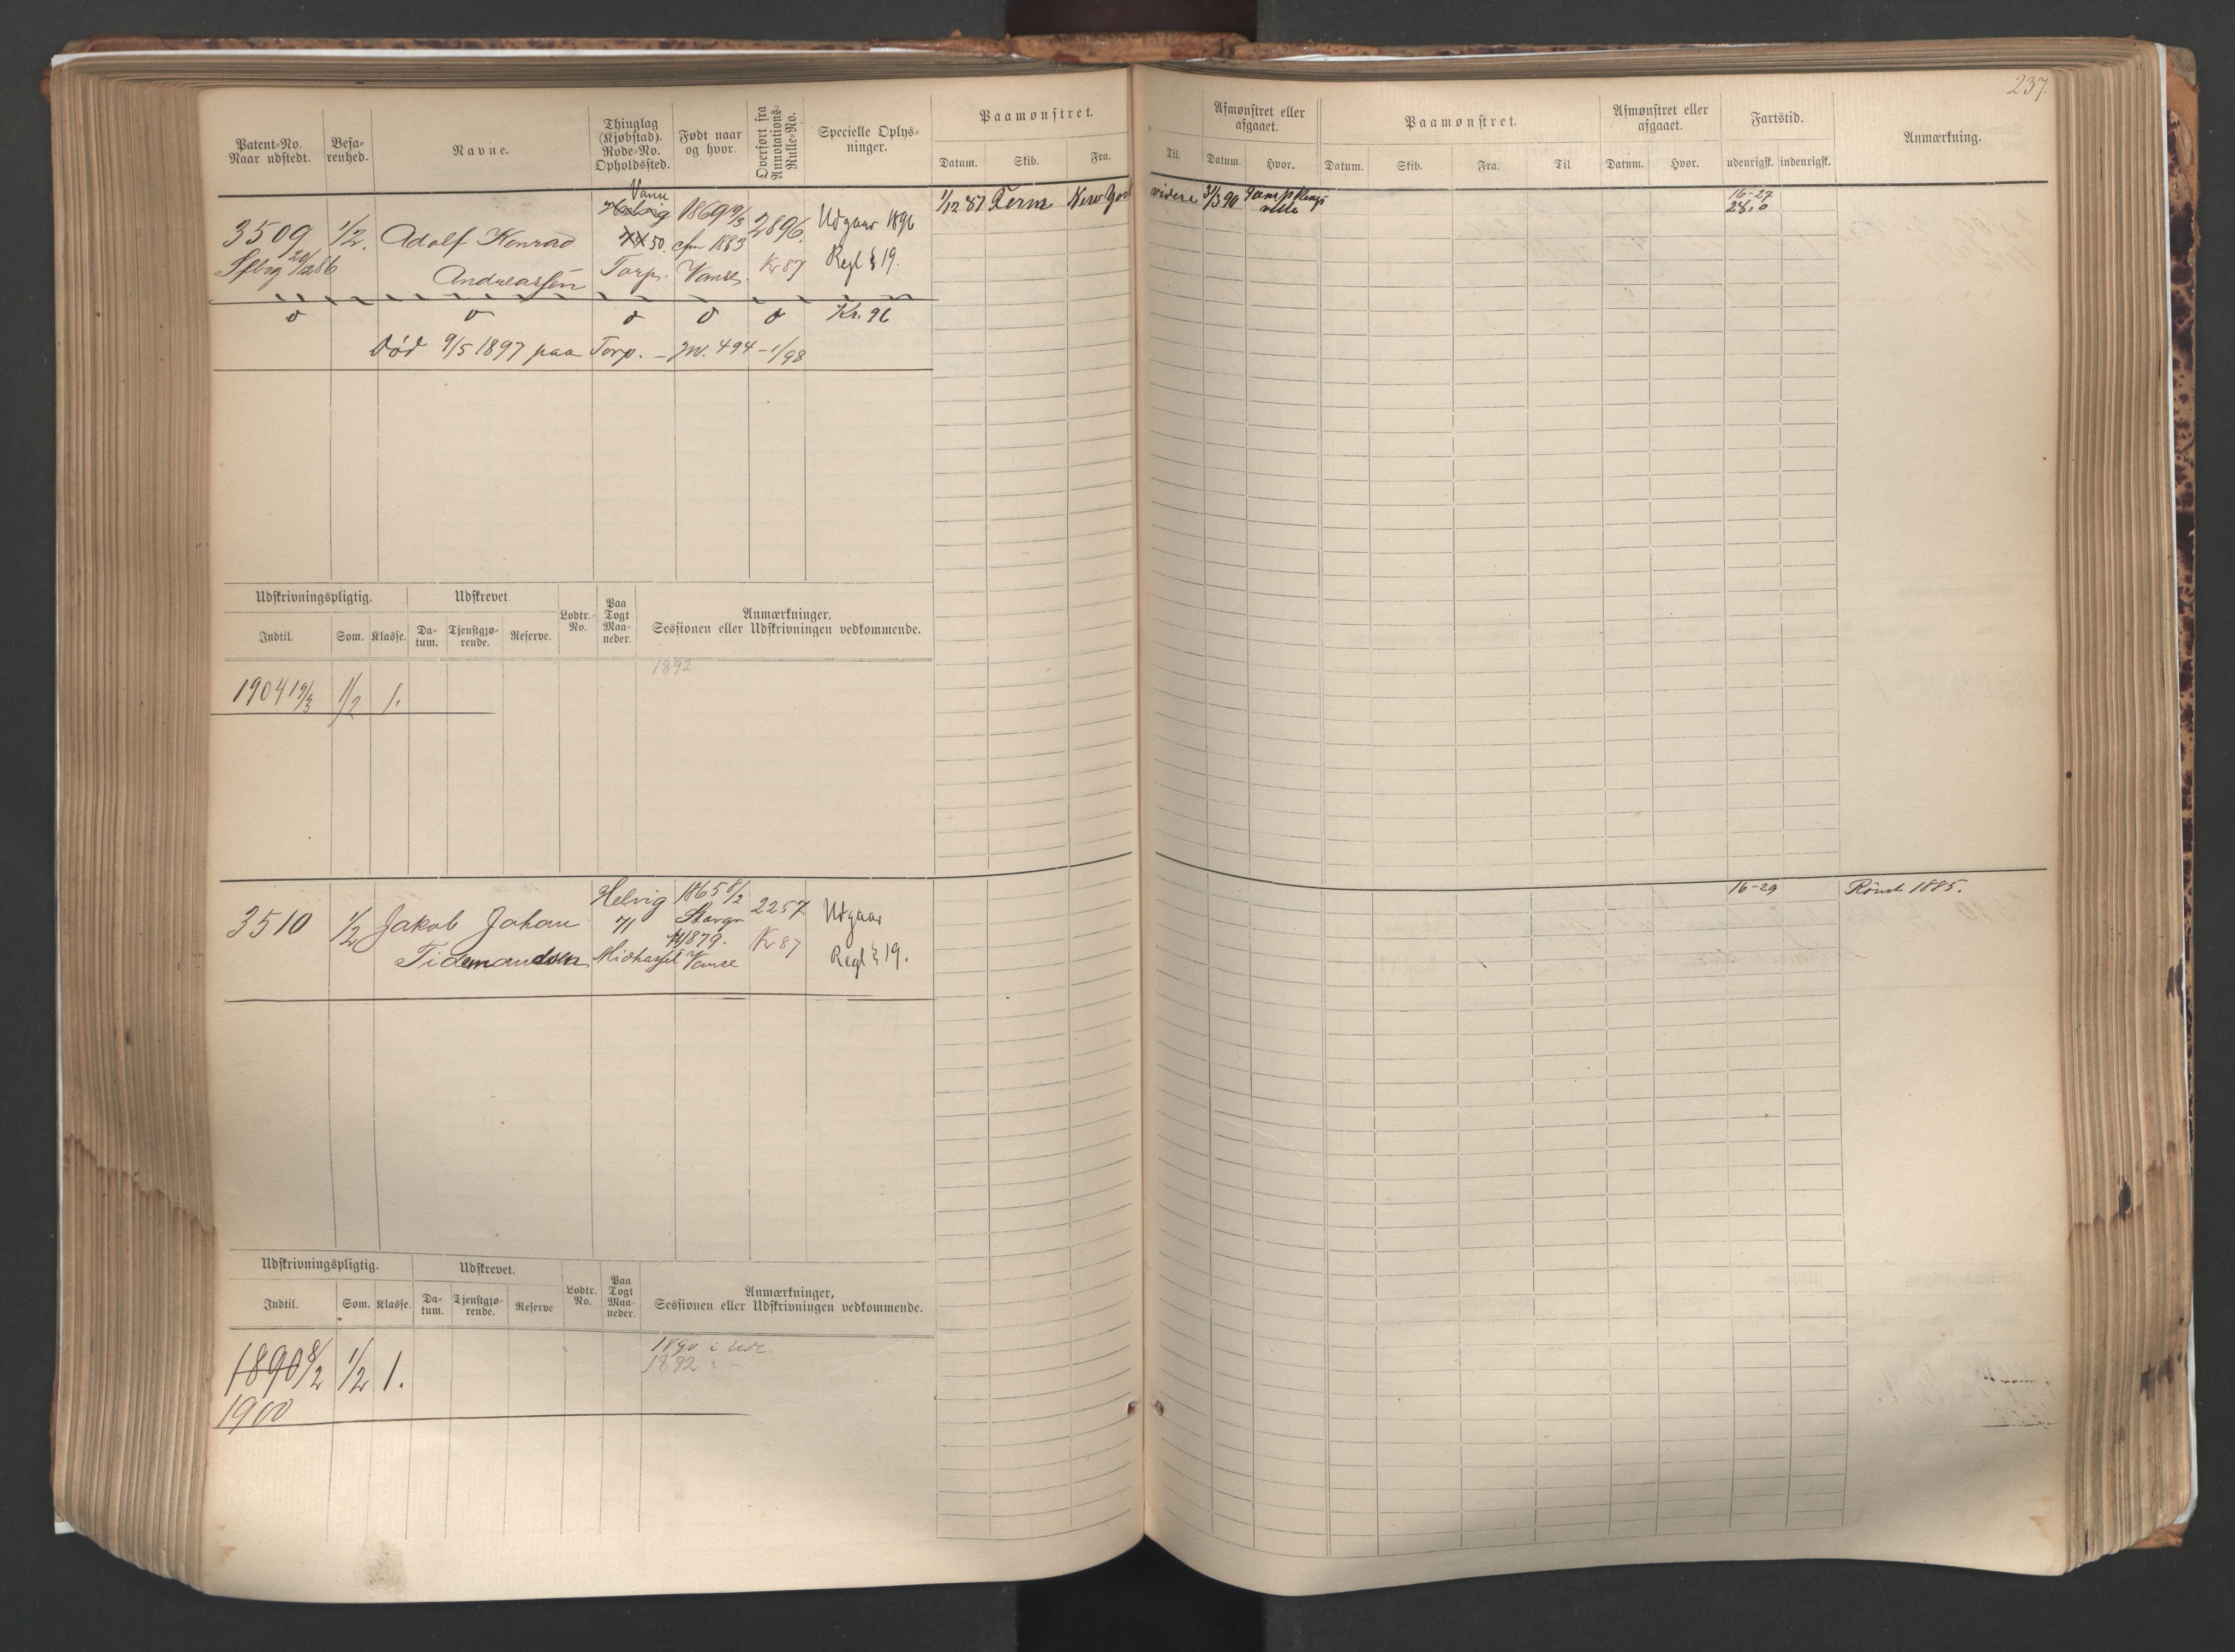 237.
Patent-No.
Naar udstedt.
Befa-
renhed.
Navne.
Thinglag
(Kjøbstad).
Rode-No.
Opholdssted.
Født naar
og hvor.
Overført fra
Annotations-
Rulle-No.
Specielle Oplys-
ninger.
Paamønstret.
Datum. Skib. Fra.
Til.
Afmønstret eller
afgaaet.
Datum. Hvor.
Paamønstret.
Datum. Skib. Fra. Til.
Afmønstret eller
afgaaet.
Datum. Hvor.
Fartstid.
udenrigsk. indenrigsk.
Anmærkning.
Vanse
3509 1/2. Adolf Konrad 50. 1869 19/3 2896. Udgaar 1896
20/12 86 Andreassen Torp. 1883 Vanse. Kr 87 Regl § 19.
1/12 87 Ferm New York videre 31/3 90
16-27
28.0
Kr. 96
Død 9/5 1897 paa Torp. - Jnr. 494 - 1/98
Udskrivningspligtig.
Indtil. Som. Klasse.
Udskrevet
Da-
tum.
Tjenstgjø-
rende.
Reserve.
Lodtr.-
No.
Paa
Togt
Maa-
neder.
Anmærkninger,
Sessionen eller Udskrivningen vedkommende.
1892
1904 19/3 1/2 1.
3510 1/2 Jakob Johan
Tidemandsen
Helvig
71
Midhassel
1865 8/2
1879.
Vanse
2257
Kr 87
Udgaar
Regl § 19.
16-29
Rømt 1885.
Udskrivningspligtig.
Indtil. Som. Klasse.
Udskrevet.
Da-
tum.
Tjenstgjø-
rende.
Reserve
Lodtr.
No.
Paa
Togt
Maa-
neder.
Anmærkninger,
Sessionen eller Udskrivningen vedkommende.
1890 i Udr.
1892 " -
1890 8/2 1/2 1.
1900